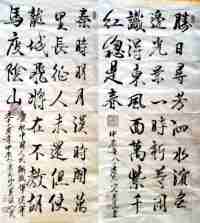 勝日尋芳泗水濱無
邊光景一時新等閒
識得東風面萬紫千
紅總是春
秦時明月漢時關萬
里長征人未還但使
龍城飛將在不教胡
馬度陰山